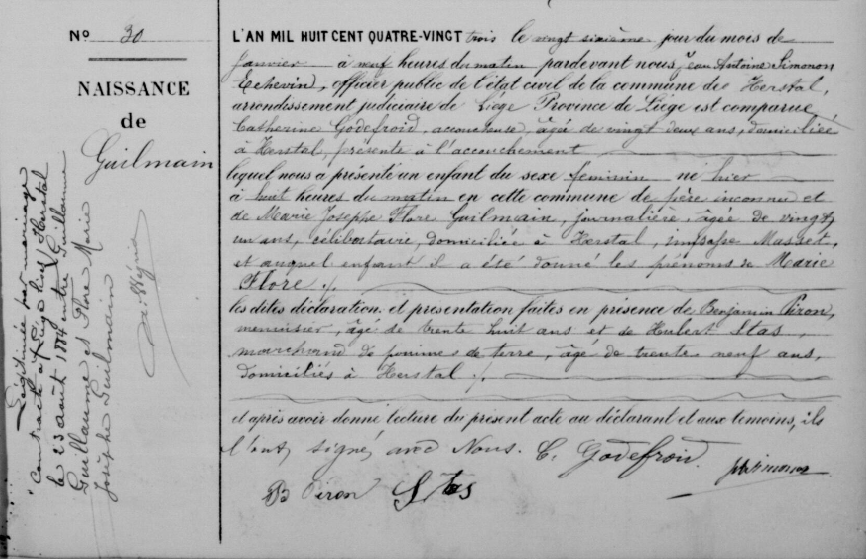 N° 30
NAISSANCE
de
Guilmain
Légitimée par mariage
contracté à Herstal
le 23 août 1884 entre Guillaume
Guillaume et Flore Marie
Josèphe Guilmain
L'AN MIL HUIT CENT QUATRE-VINGT trois le vingt sixième jour du mois de
Janvier à neuf heures du matin pardevant nous, Jean Antoine Simonon
Echevin, officier public de l'état civil de la commune de Herstal,
arrondissement judiciaire de Liège Province de Liège est comparue
Catherine Godefroid, accoucheuse, âgée de vingt deux ans, domiciliée
à Herstal, présente à l'accouchement
lequel nous a présenté un enfant du sexe feminin né hier
à huit heures du matin en cette commune de père inconnu et
de Marie Josèphe Flore Guilmain, journalière, âgée de vingt
un ans, célibataire, domiciliée à Herstal, impasse Masset,
et auquel enfant il a été donné les prénoms de Marie
Flore ./.
les dites déclaration et présentation faites en présence de Benjamin Piron,
menuisier, âgé de trente huit ans et de Hubert Stas,
marchand de pommes de terre, âgé de trente neuf ans,
domiciliés à Herstal ./.
et après avoir donné lecture du présent acte au déclarant et aux temoins, ils
l'ont signé avec Nous. C. Godefroid.
B Piron Stas